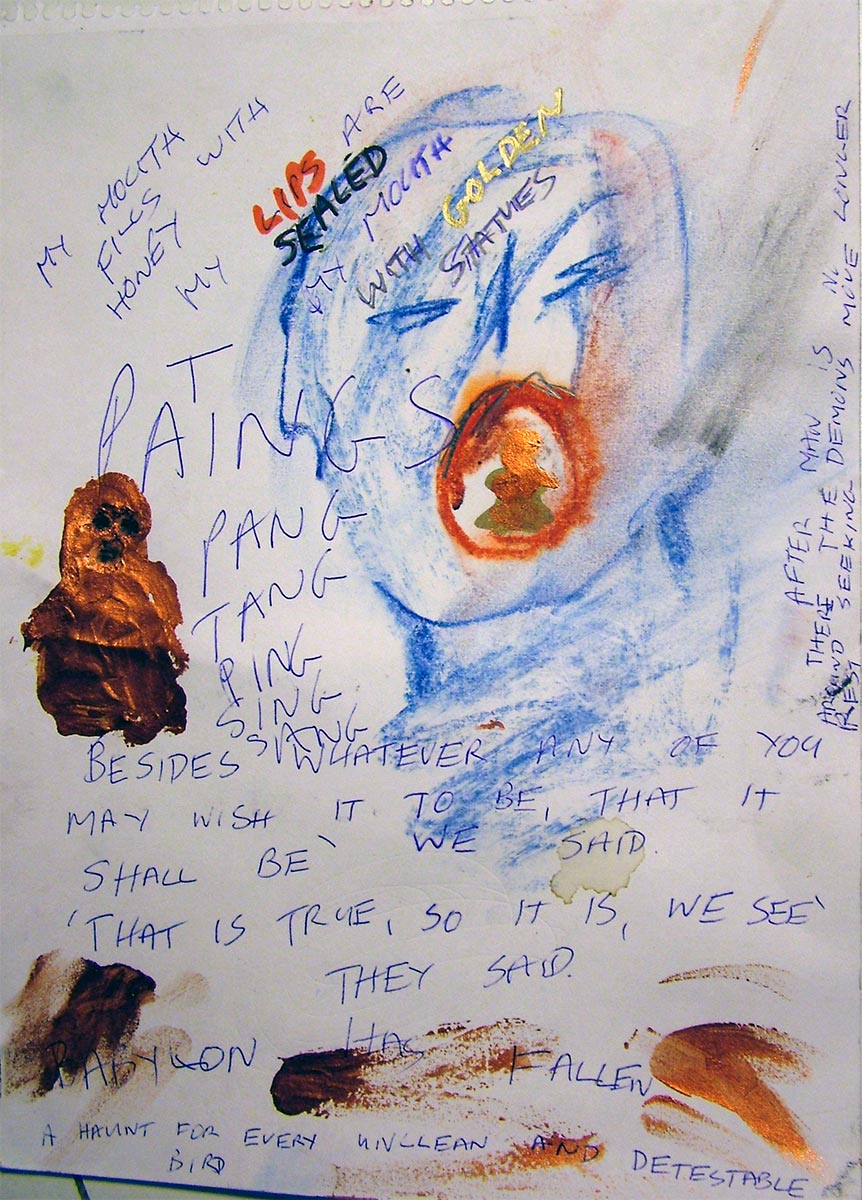 MY MOUTH
FILLS WITH
HONEY
MY LIPS ARE
SEALED
MY MOUTH
WITH GOLDEN
STATUES
PAT
PAINGS
PANG
TANG
PING
SING
SANG
BESIDES WHATEVER ANY OF YOU
MAY WISH IT TO BE, THAT IT
SHALL BE` WE SAID.
'THAT IS TRUE, SO IT IS, WE SEE`
THEY SAID.
BABYLON HAS FALLEN
A HAUNT FOR EVERY UNCLEAN AND DETESTABLE
BIRD
AFTER MAN IS NO
THERE THE DEMONS MOVE LONGER
AROUND SEEKING
REST